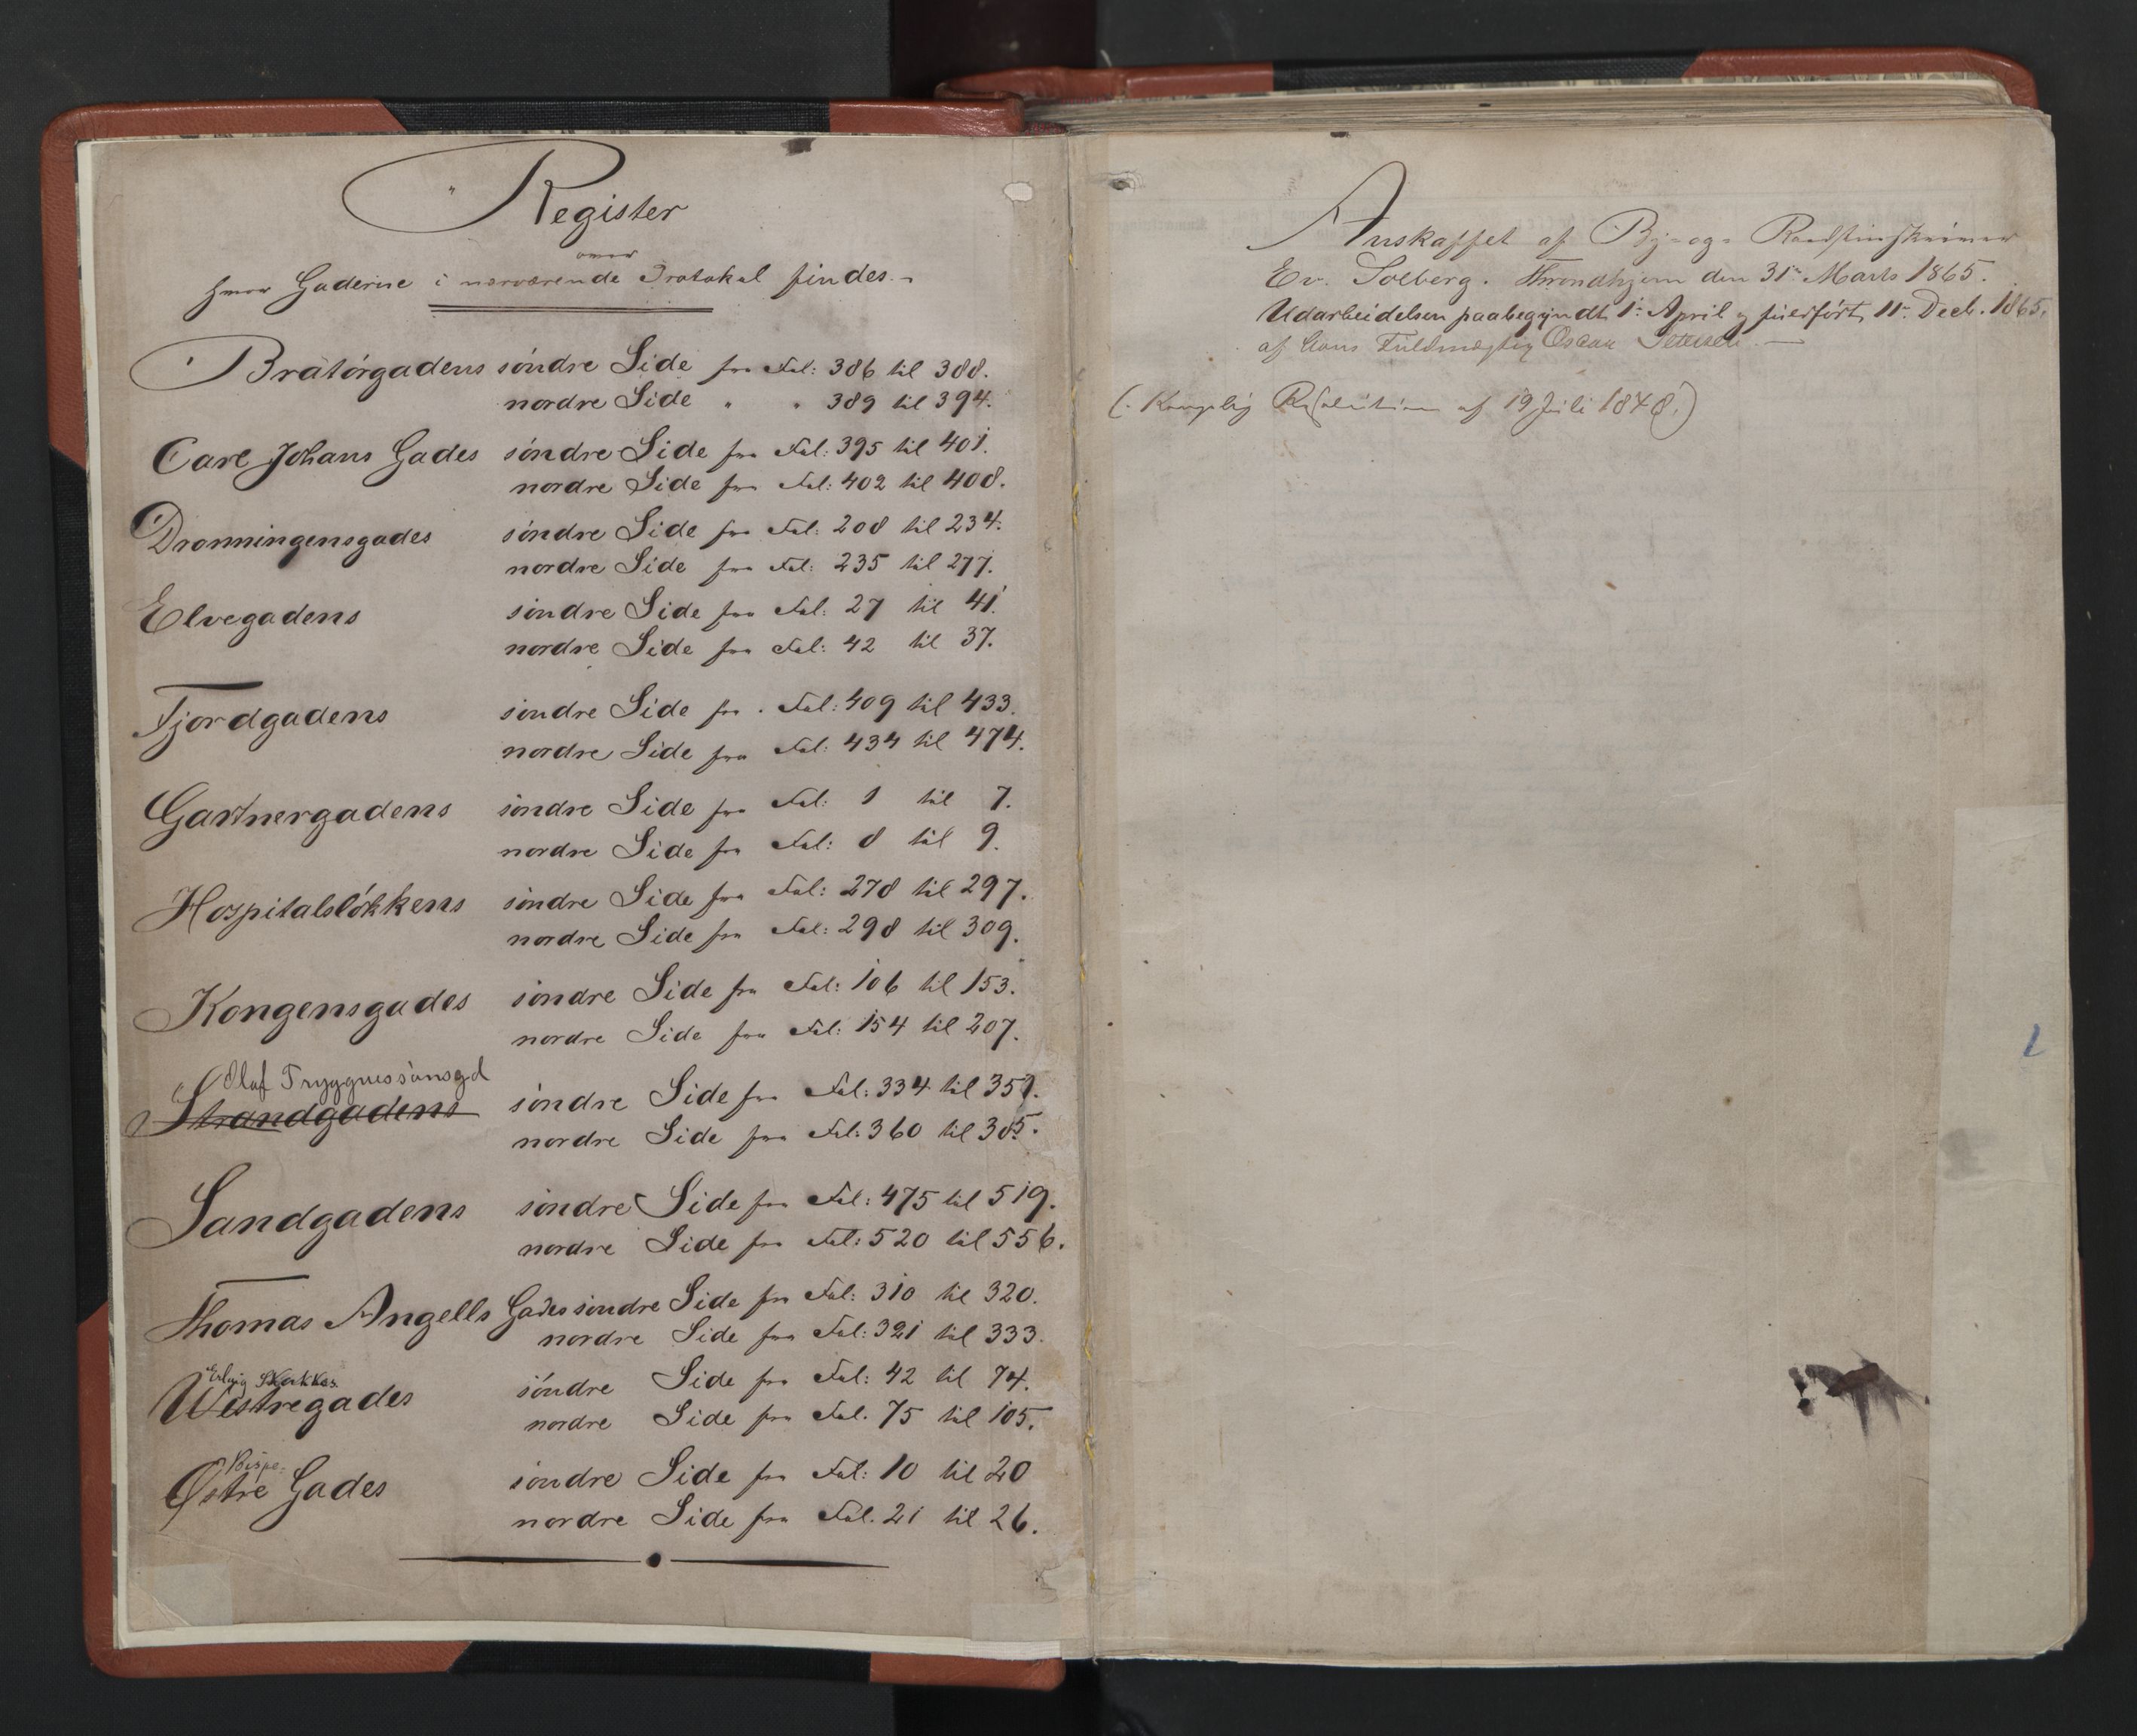 Register
over
hvor Gaderne i nærværende Protokol findes.-
Bratørgadens søndre Side fra Fol: 386 til 388.
nordre Side " " 389 til 394.
Carl Johans Gades søndre Side fra Fol: 395 til 401.
nordre Side fra Fol: 402 til 408.
Dronningensgades søndre Side fra Fol: 208 til 234.
nordre Side fra Fol: 235 til 277.
Elvegadens søndre Side fra Fol: 27 til 41.
nordre Side fra Fol: 42 til 37.
Fjordgadens søndre Side fra Fol: 409 til 433.
nordre Side fra Fol: 434 til 474.
Gartnergadens søndre Side fra Fol: 1 til 7.
nordre Side fra Fol: 8 til 9.
Hospitalsløkkens søndre Side fra Fol: 278 til 297.
nordre Side fra Fol: 298 til 309.
Kongensgades søndre Side fra Fol: 106 til 153.
nordre Side fra Fol: 154 til 207.
Olaf Tryggvessønsgd
Strandgadens søndre Side fra Fol: 334 til 359.
nordre Side fra Fol: 360 til 385.
Sandgadens søndre Side fra Fol: 475 til 519.
nordre Side fra Fol: 520 til 556.
Thomas Angells Gades søndre Side fra Fol: 310 til 320.
nordre Side fra Fol: 321 til 333.
Erling Skakkes
Westregades søndre Side fra Fol: 42 til 74.
nordre Side fra Fol. 75 til 105.
Bispe-
Østre Gades søndre Side fra Fol: 10 til 20
nordre Side fra Fol. 21 til 26.
Anskaffet af By- og Raadstueskriver
Ev. Solberg. Throndhjem den 31te Marts 1865.
Udarbeidelsen paabegyndt 1te April og fuldført 11te Decb. 1865,
af hans Fuldmægtig Oscar Petersen.
(: Kongelig Resolution af 19 Juli 1848.)
1